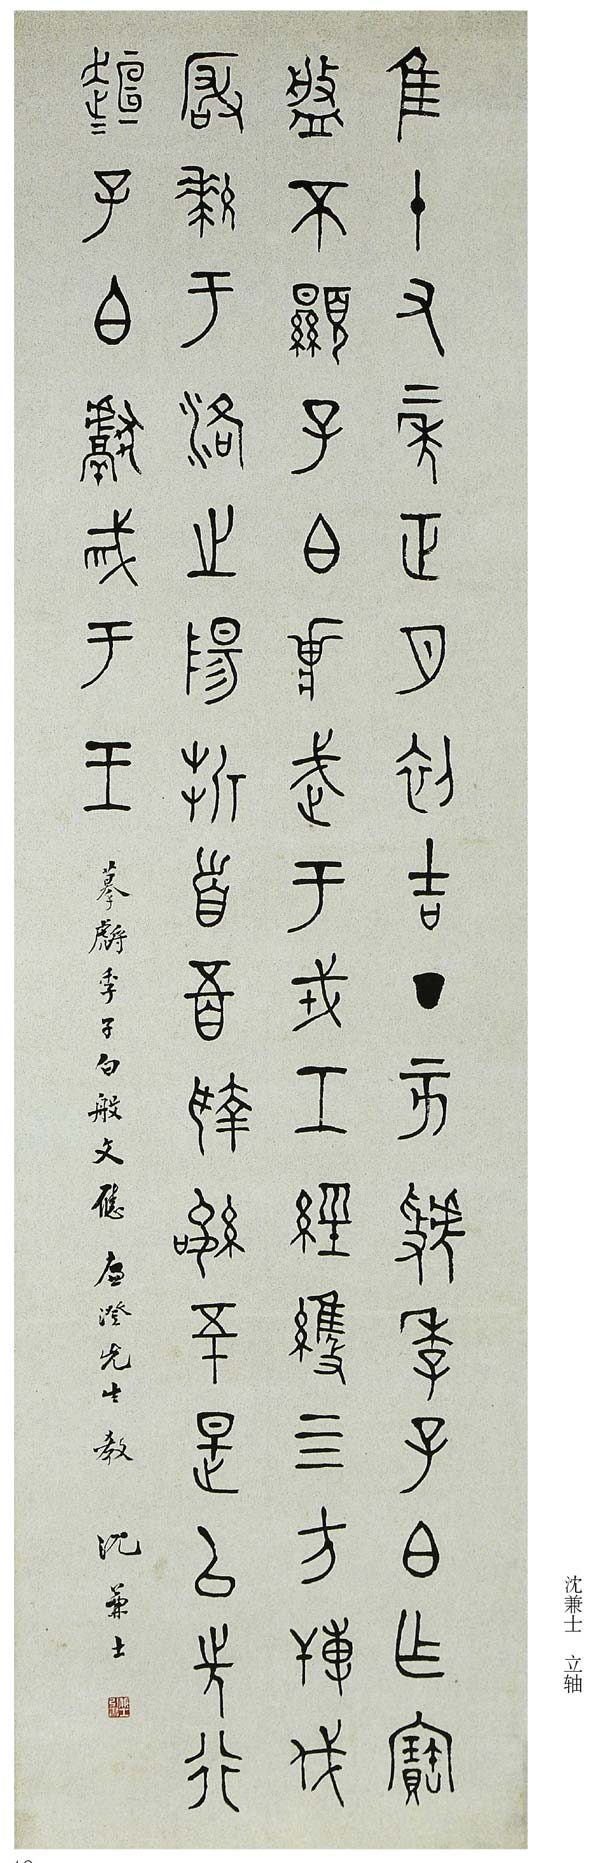 隹十又二年正月初吉丁亥虢季子白乍寶
盤不顯子白𤕌武于戎工經維四方搏伐
厰𤞤于洛之陽折首五百執訊五十是以先行
趄趄子白獻馘于王
摹虢季子白般文應 澄先生教 沈兼士
沈兼士 立轴